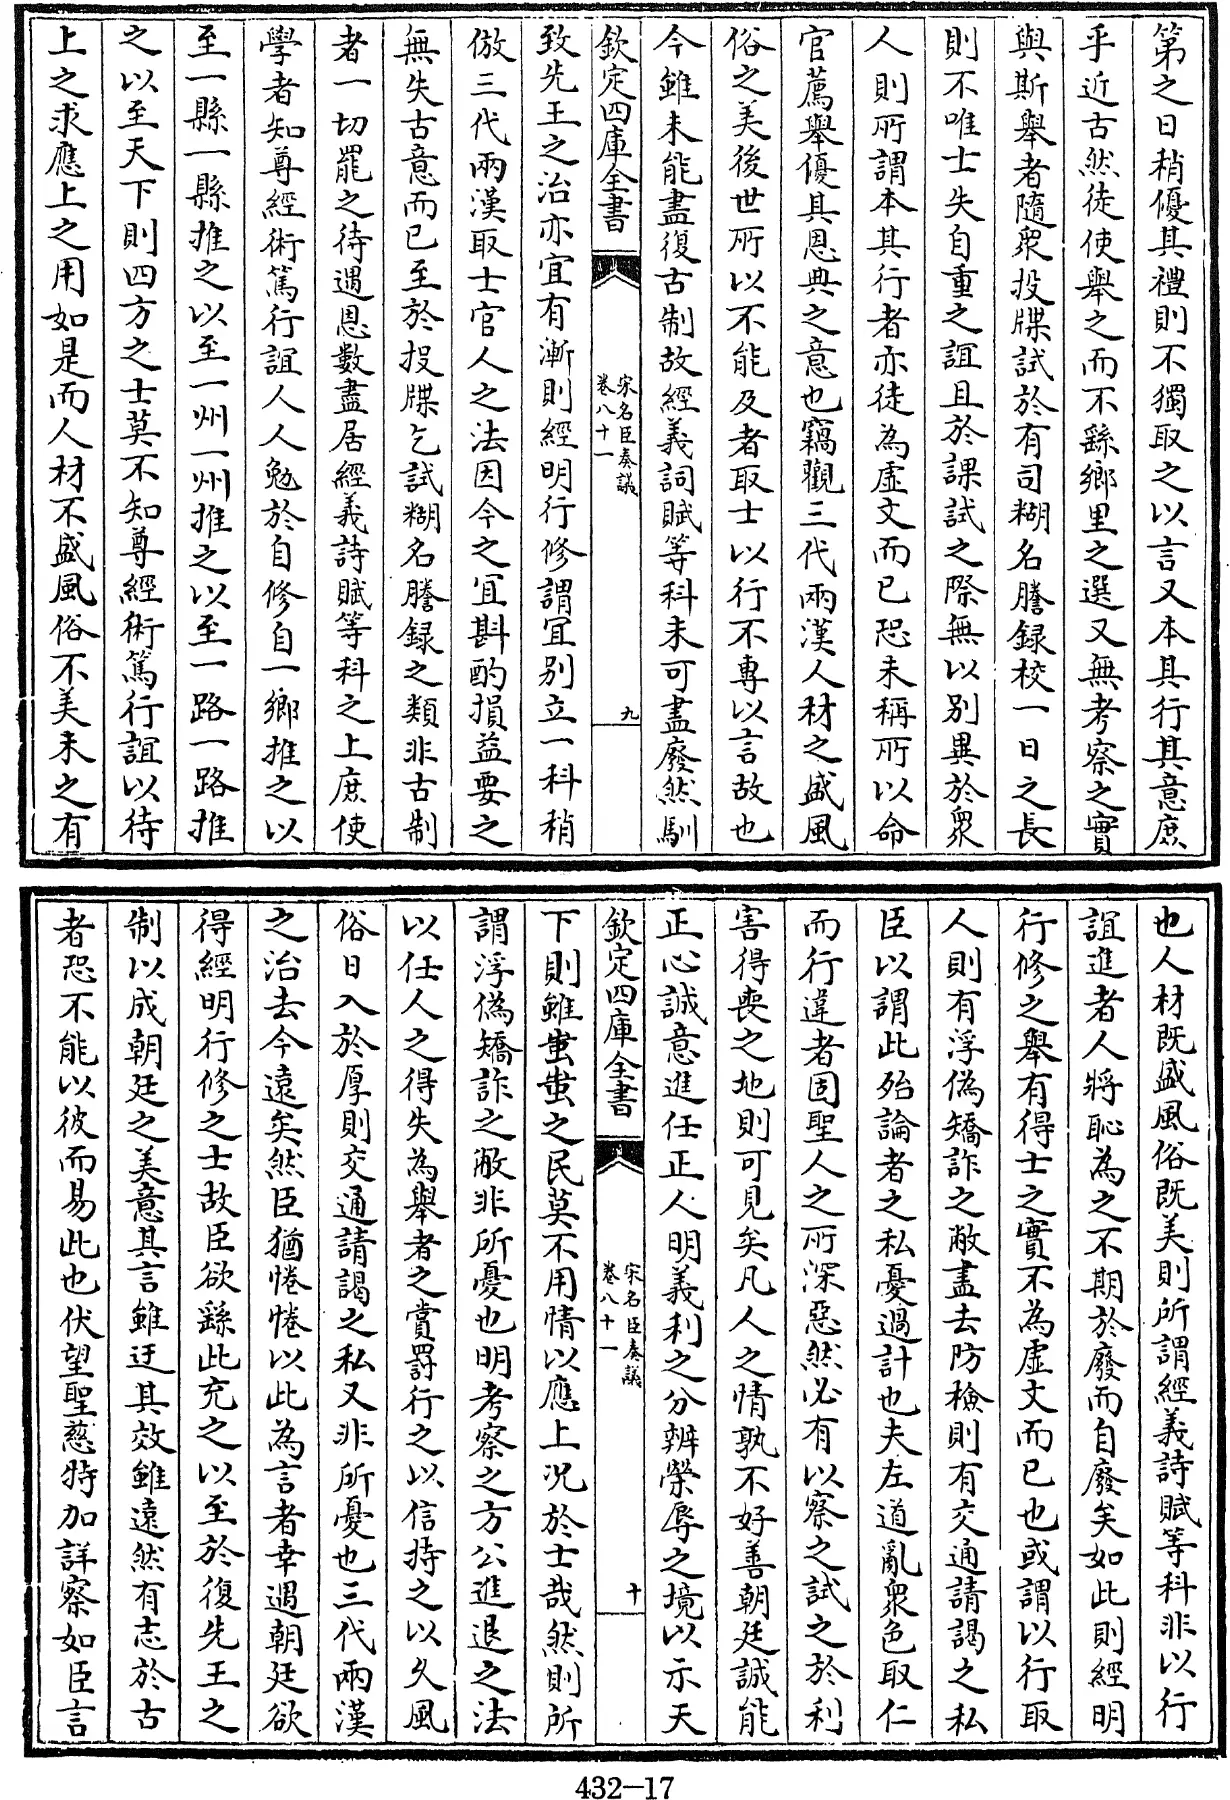 第之日稍優其禮則不獨取之以言又本其行其意庶
乎近古然徒使舉之而不繇鄉里之選又無考察之實
與斯舉者隨衆投牒試於有司糊名謄録校一日之長
則不唯士失自重之誼且於課試之際無以別異於衆
人則所謂本其行者亦徒為虛文而已恐未稱所以命
官薦舉優其恩典之意也竊觀三代兩漢人材之盛風
俗之美後世所以不能及者取士以行不專以言故也
今雖未能盡復古制故經義詞賦等科未可盡廢然馴
欽定四庫全書
宋名臣奏議
卷八十一
九
致先王之治亦宜有漸則經明行修謂宜別立一科稍
倣三代兩漢取士官人之法因今之宜斟酌損益要之
無失古意而已至於投牒乞試糊名謄録之類非古制
者一切罷之待遇恩數盡居經義詩賦等科之上庶使
學者知尊經術篤行誼人人勉於自修自一鄉推之以
至一縣一縣推之以至一州一州推之以至一路一路推
之以至天下則四方之士莫不知尊經術篤行誼以待
上之求應上之用如是而人材不盛風俗不美未之有
也人材既盛風俗既美則所謂經義詩賦等科非以行
誼進者人將恥為之不期於廢而自廢矣如此則經明
行修之舉有得士之實不為虛文而已也或謂以行取
人則有浮偽矯詐之敝盡去防檢則有交通請謁之私
臣以謂此殆論者之私憂過計也夫左道亂衆色取仁
而行違者固聖人之所深惡然必有以察之試之於利
害得喪之地則可見矣凡人之情孰不好善朝廷誠能
正心誠意進任正人明義利之分辨榮辱之境以示天
欽定四庫全書
宋名臣奏議
卷八十一
十
下則雖蚩蚩之民莫不用情以應上况於士哉然則所
謂浮偽矯詐之敝非所憂也明考察之方公進退之法
以任人之得失為舉者之賞罰行之以信持之以久風
俗日入於厚則交通請謁之私又非所憂也三代兩漢
之治去今遠矣然臣猶惓惓以此為言者幸遇朝廷欲
得經明行修之士故臣欲繇此充之以至於復先王之
制以成朝廷之美意其言雖迂其效雖遠然有志於古
者恐不能以彼而易此也伏望聖慈特加詳察如臣言
432—17